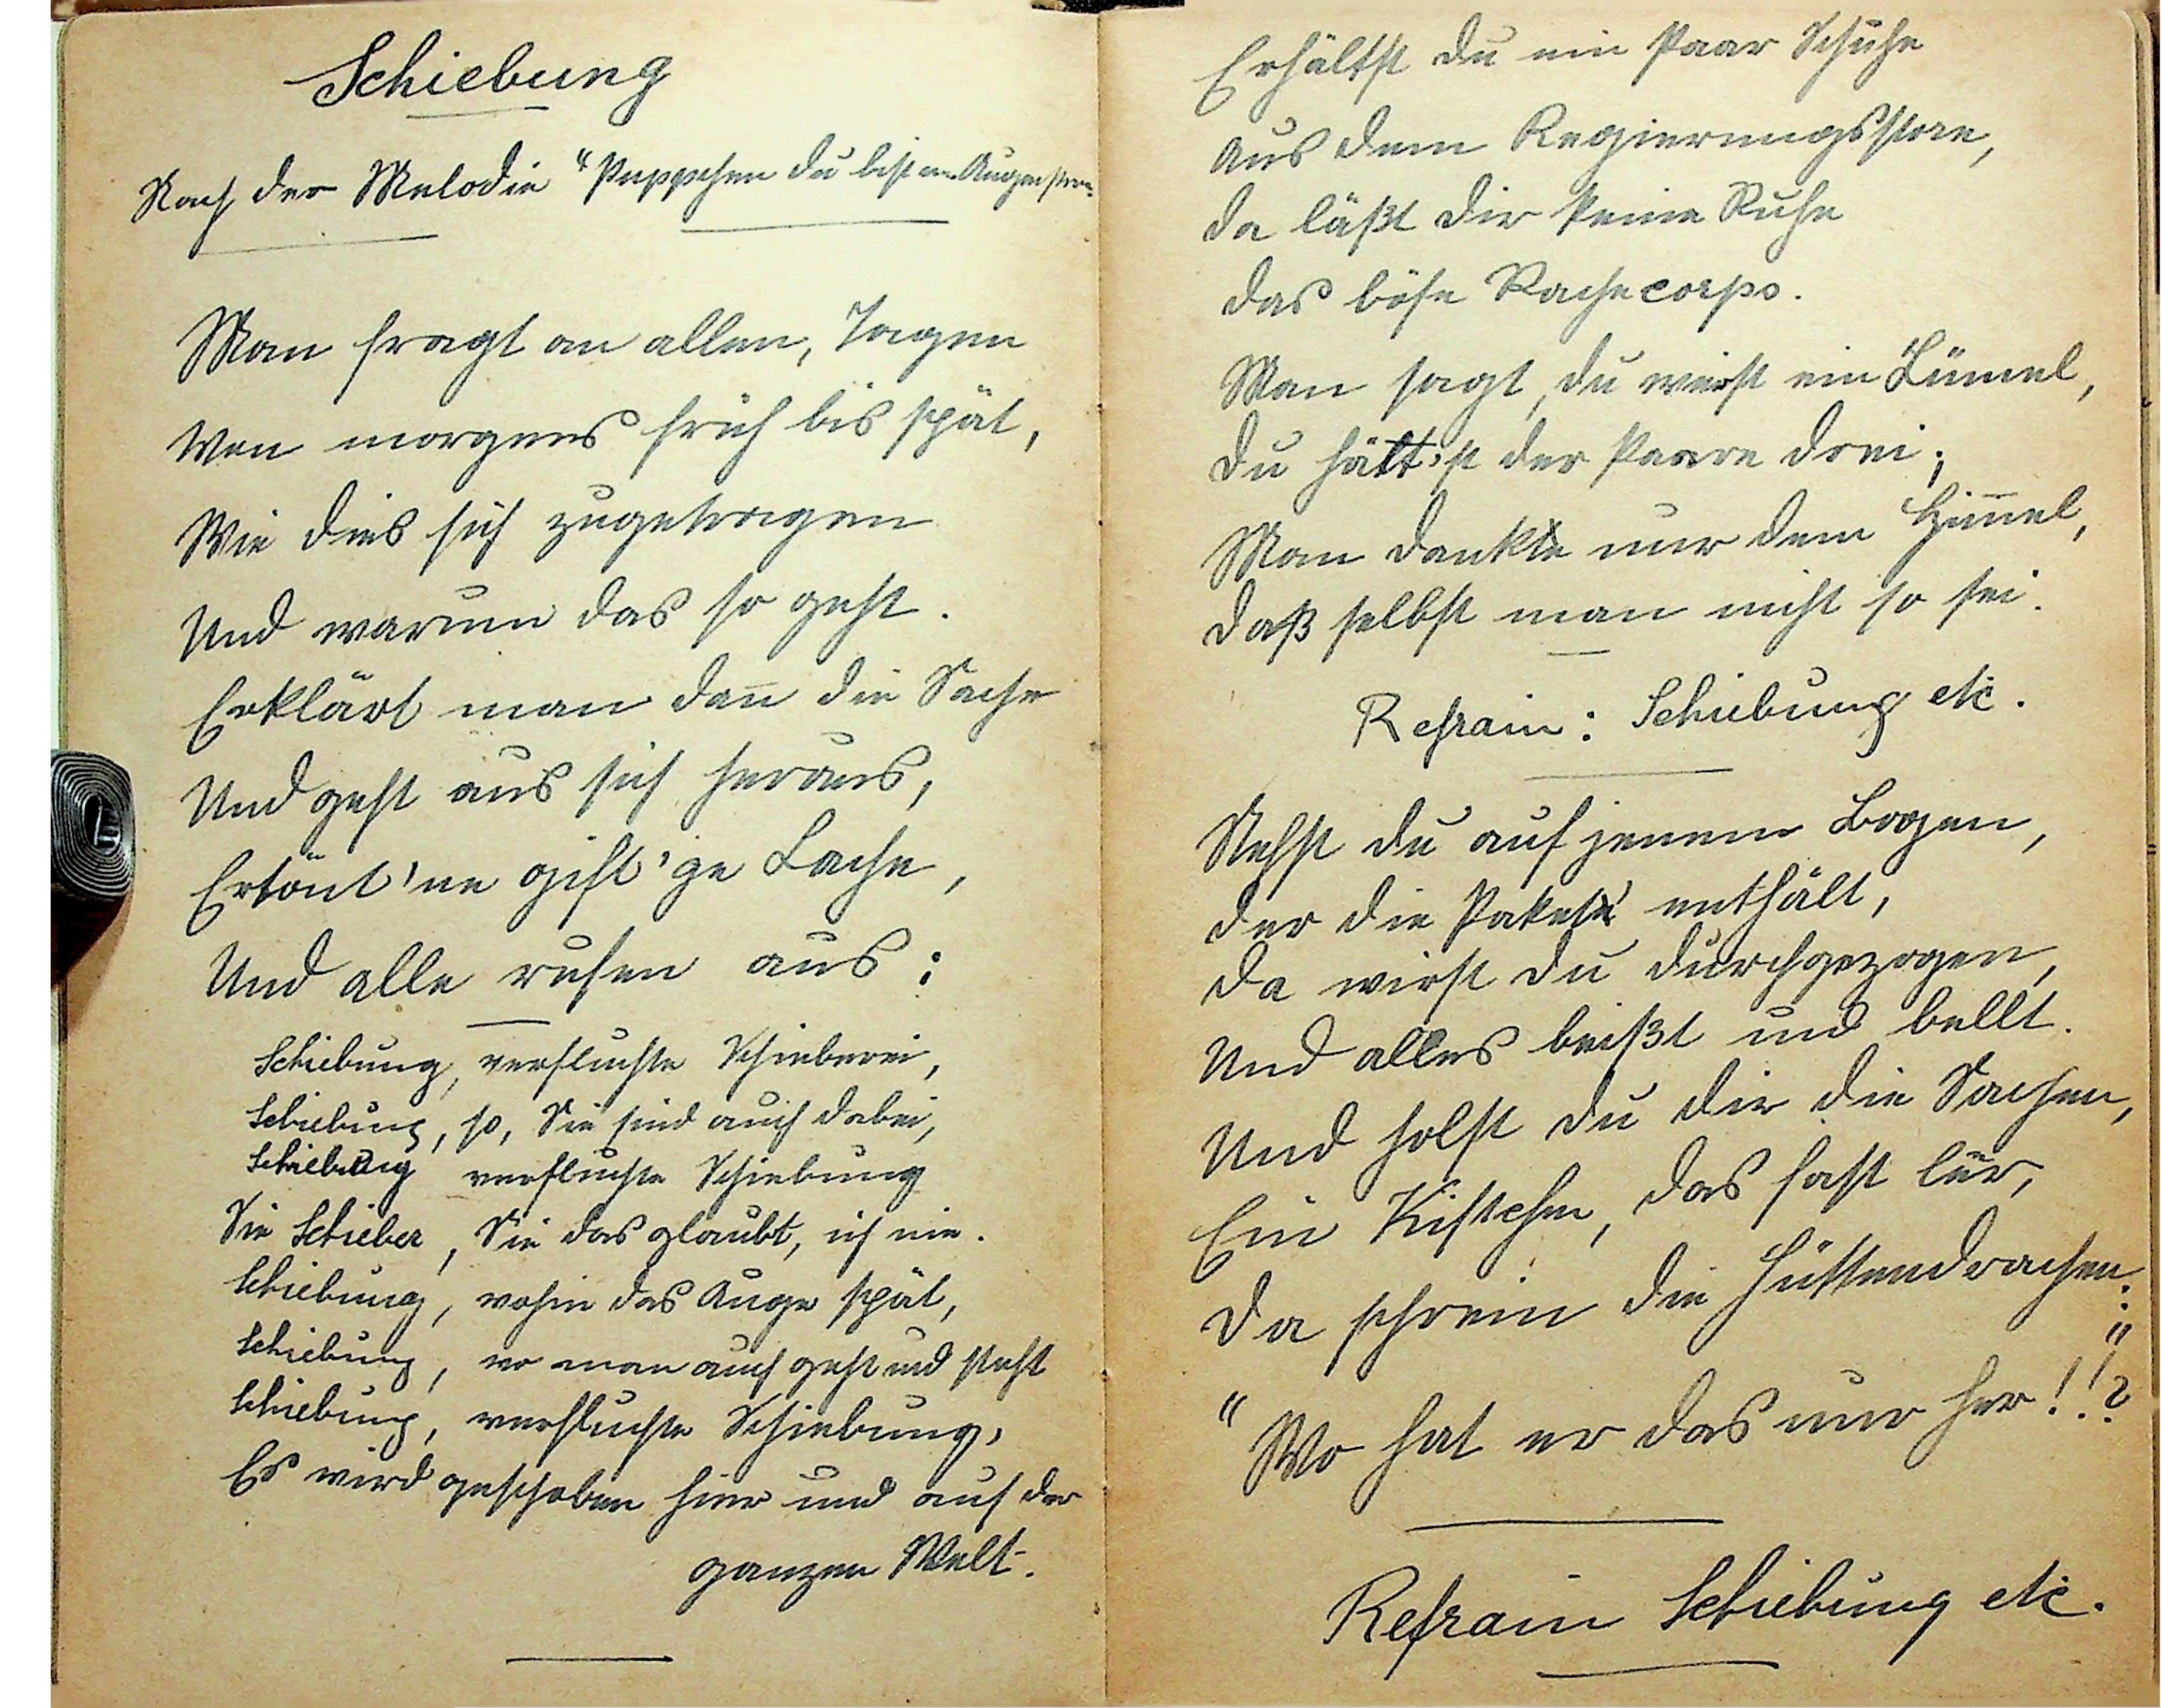 Schiebung
Nach der Melodie "Puppchen du bist m. Augenstern
Man fragt an allen, Tagen
Von morgens früh bis spät,
Wie dies sich zugetragen
Und warum das so geht.
Erklärt man dan̄ die Sache
Und geht aus sich heraus,
Ertönt 'ne gift'ge Lache,
Und alle rufen aus:
Schiebung, verfluchte Schieberei,
Schiebung, so, Sie sind auch dabei,
Schiebung verfluchte Schiebung
Sie Schieber, Sie das glaubt, ich nie.
Schiebung, wohin das Auge spät,
Schiebung, wo man auch geht und steht
Schiebung, verfluchte Schiebung,
Es wird geschoben hier und auf der
ganzen Welt.
Erhältst du ein Paar Schuhe
Aus dem Regierungsstore,
da läßt dir keine Ruhe
das böse Rachecorps.
Man sagt, du wärst ein Lümel,
du hätt'st der Paare drei;
Man dankte nur dem Him̄el,
daß selbst man nicht so sei.
Refrain: Schiebung etc.
Stehst du auf jenem Bogen,
der die Pakete enthält,
da wirst du durchgezogen,
Und alles beißt und bellt.
Und holst du dir die Sachen,
Ein Kistchen, das fast leer,
da schrein die Hüttendrachen:
"Wo hat er das nur her!!?"
Refrain Schiebung etc.